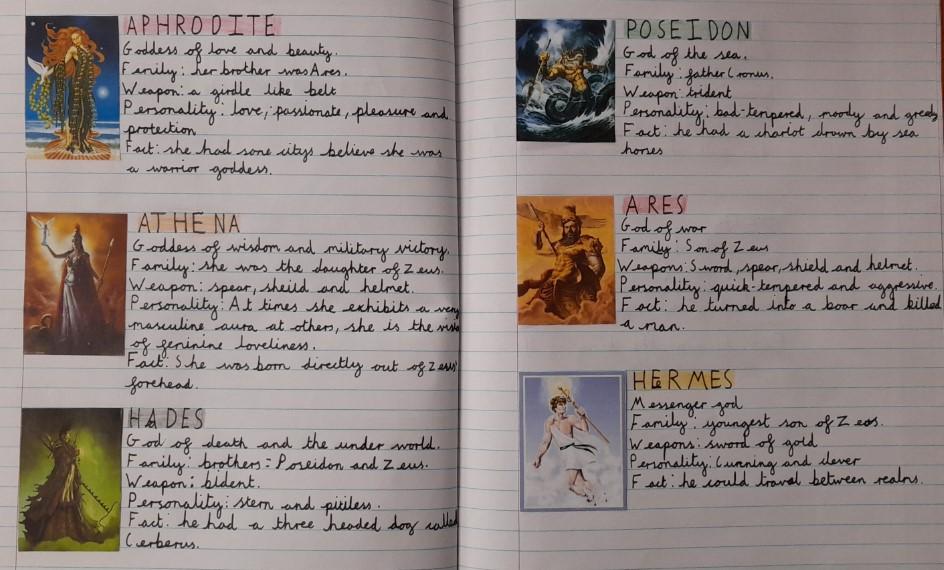 APHRODITE
Goddess of love and beauty.
Family: her brother was Ares.
Weapon: a girdle like belt
Personality: love, passionate, pleasure and
protection
Fact: she had some citys believe she was
a warrior goddess.
ATHENA
Goddess of wisdom and military victory.
Family: she was the daughter of Zeus.
Weapon: spear, sheild and helmet.
Personality: At times she exhibits a very
masculine aura at others, she is the
of feminine loveliness.
Fact: She was born directly out of Zeus'
forehead.
HADES
God of death and the under world.
Family: brothers = Poseidon and Zeus.
Weapon: bident.
Personality: stern and pitiless.
Fact: he had a three headed dog called
Cerberus.
POSEIDON
God of the sea.
Family: father Cronus.
Weapon: trident
Personality: bad-tempered, moody and greedy
Fact: he had a chariot drawn by sea
horses
ARES
God of war
Family: Son of Zeus
Weapons: Sword, spear, shield and helmet.
Personality: quick-tempered and aggressive.
Fact: he turned into a boar and killed
a man.
HERMES
Messenger god
Family: youngest son of Zeos.
Weapons: sword of gold
Personality: Cunning and clever
Fact: he could travel between realms.